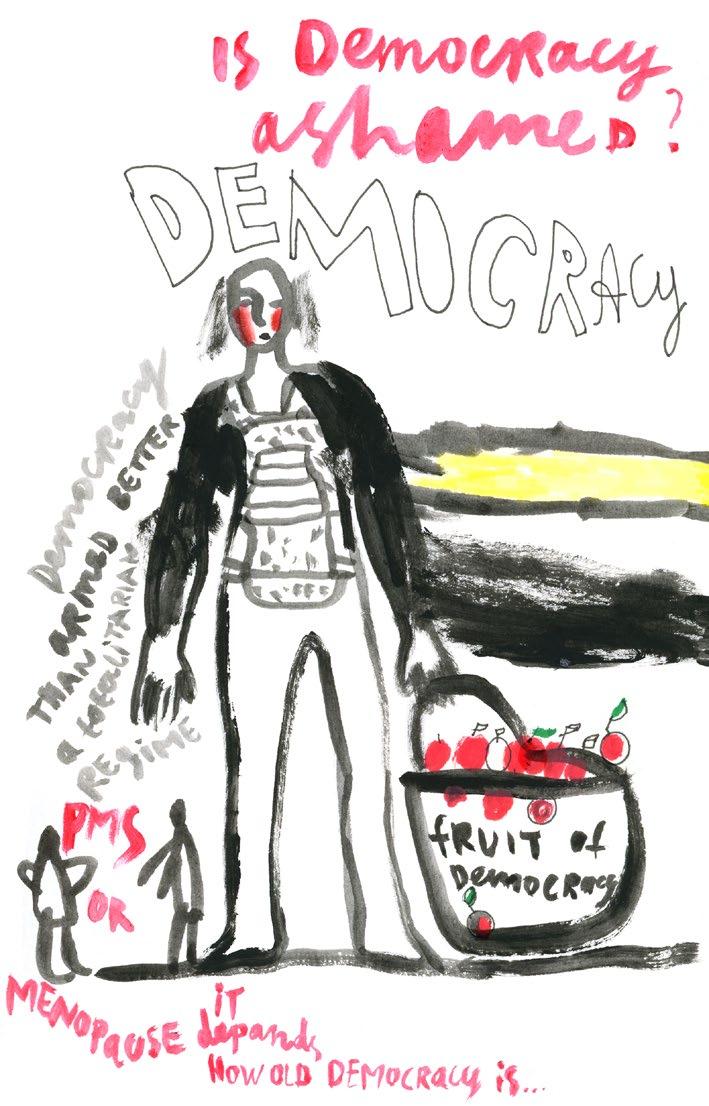 is Democracy
ashameD?
DEMOCRACY
Democracy
ARMED BETTER
THAN
a totalitarian
REGIME
PMS
OR
MENOPAUSE
iT
depands
HOW OLD DEMOCRACY is...
fRUIT of
DEMOCRACY